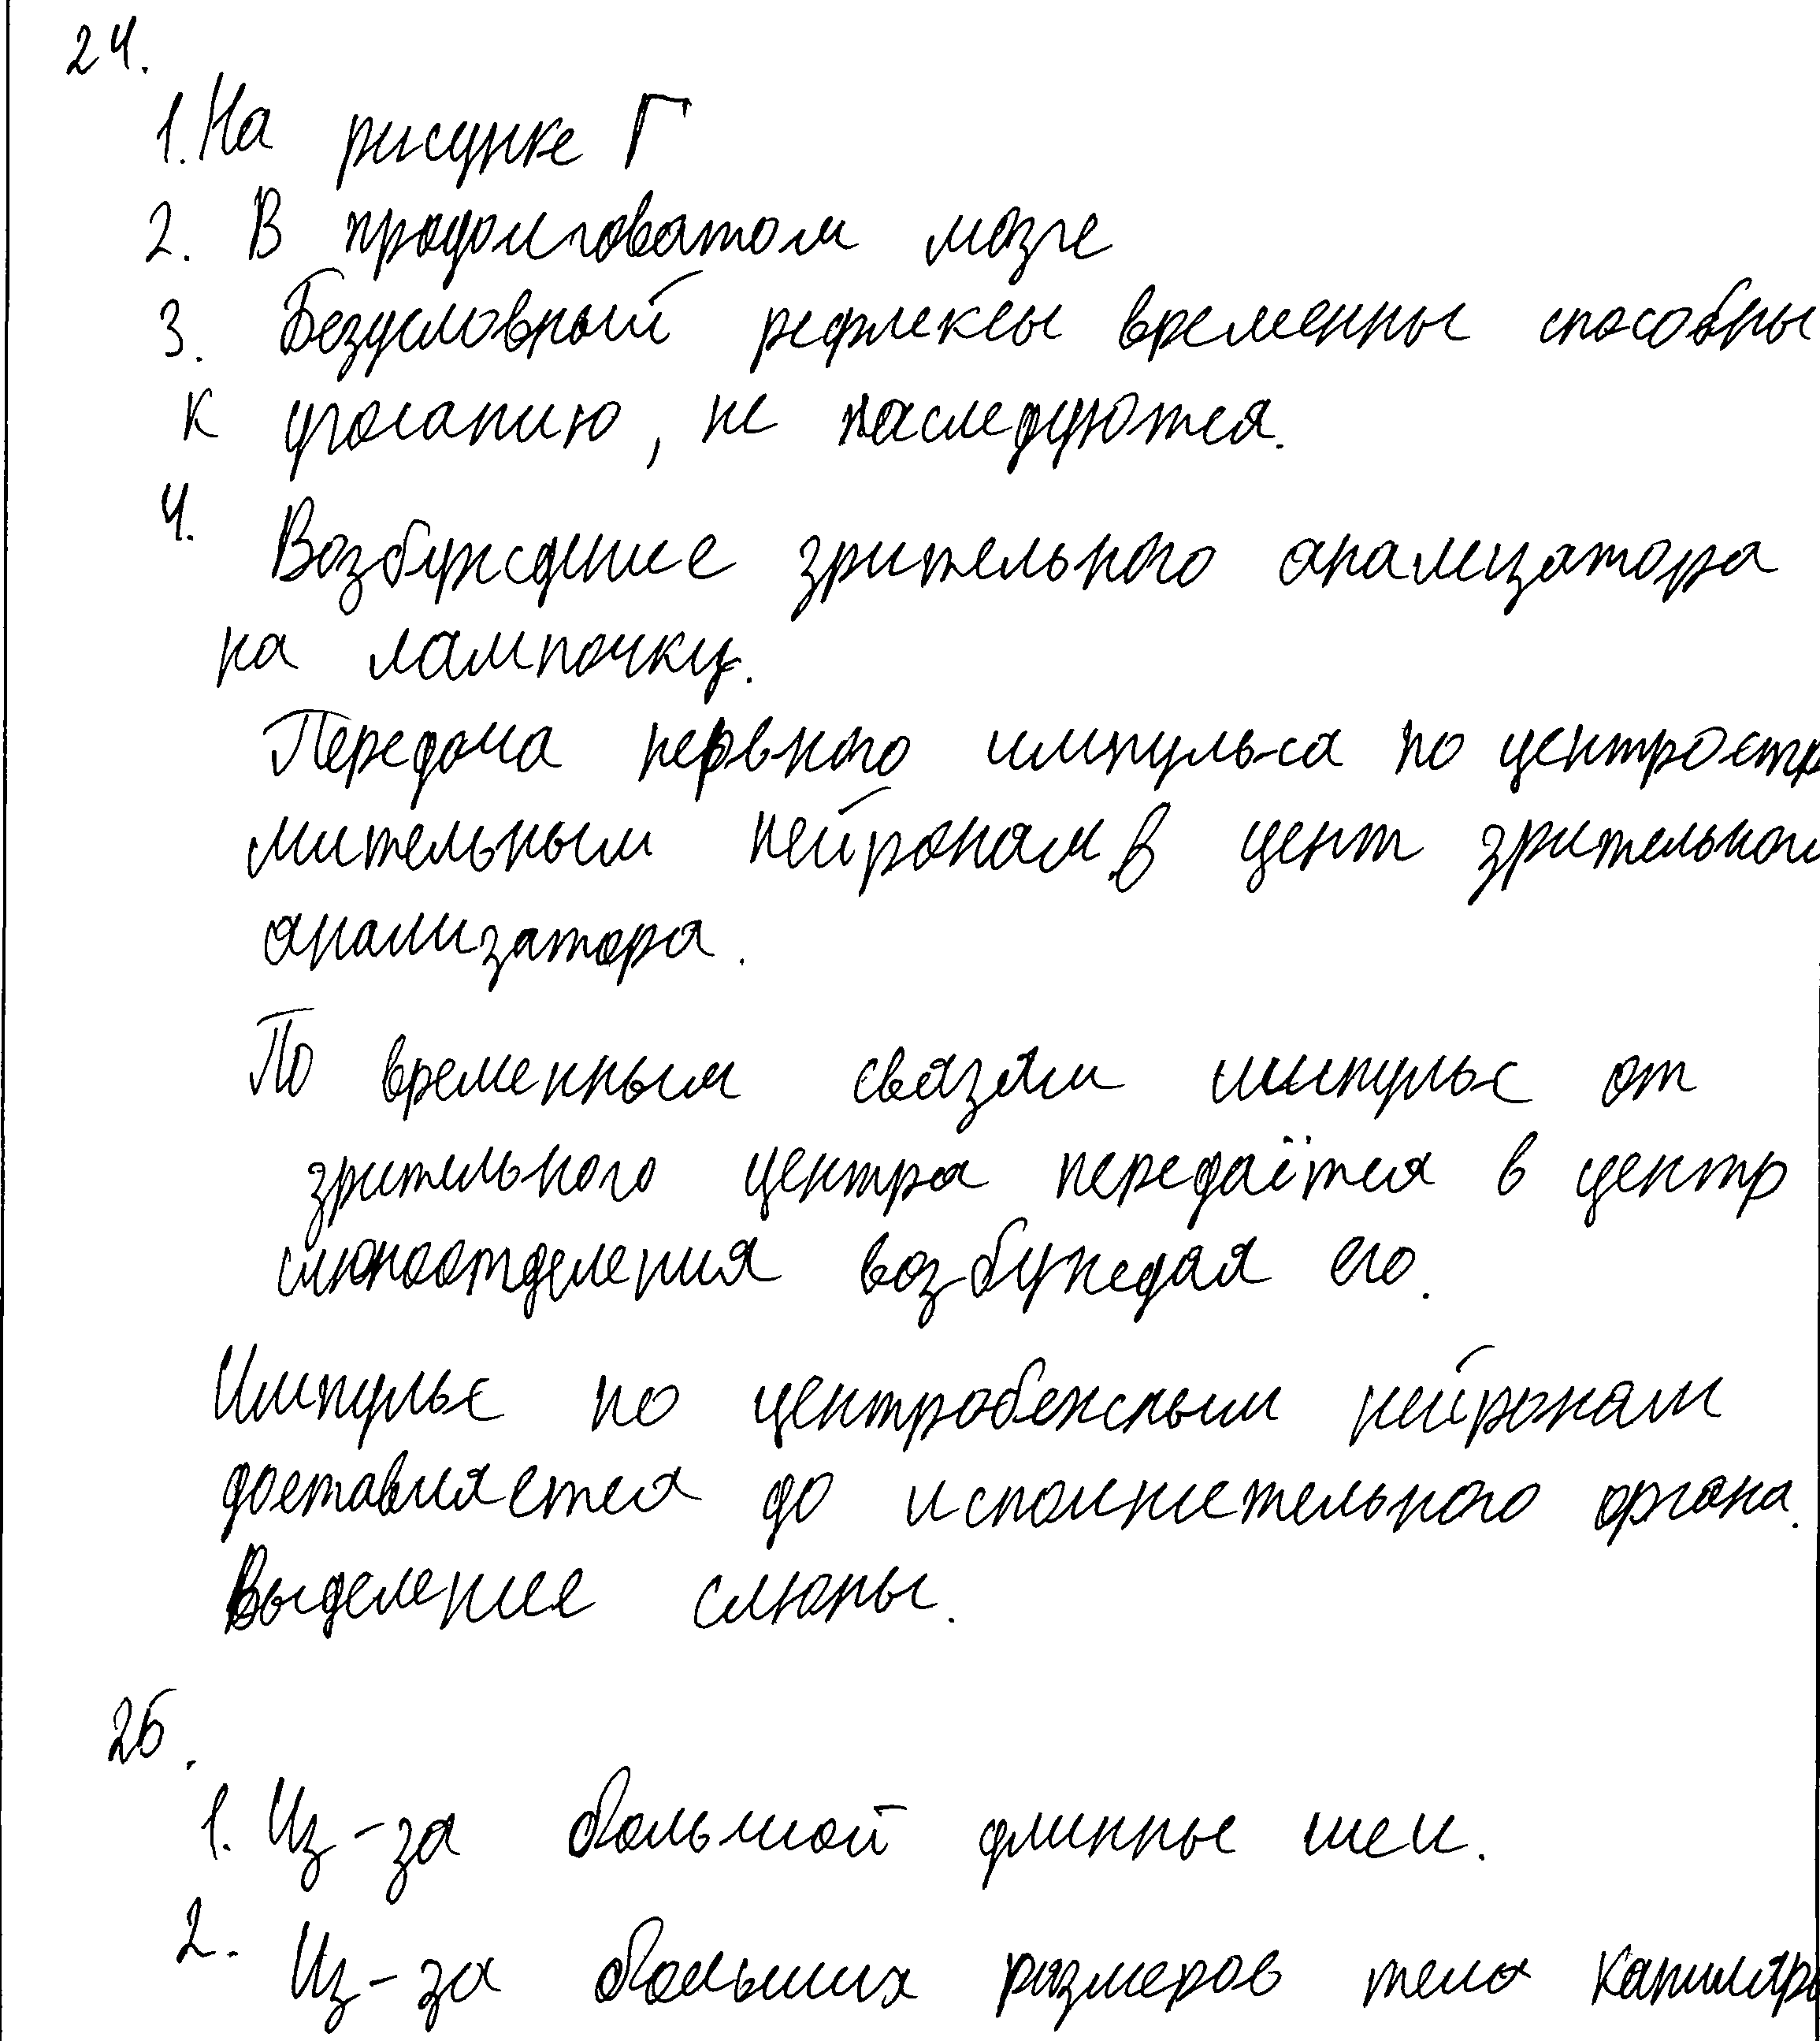 24.
1. На рисунке Г
2. В продолговатом мозге
3. Безусловный рефлексы временны способны
к угасанию, не наследуются.
4. Возбуждение зрительного анализатора
на лампочку.
Передача нервного импульса по центростре
мительным нейронам в цент зрительного
анализатора.
По временным связям импульс от
зрительного центра передаётся в центр
слюноотделения возбуждая его.
Импульс по центробежным нейронам
доставляется до исполнительного органа.
Выделение слюны.
25.
1. Из-за большой длинны шеи.
2. Из-за больших размеров тела